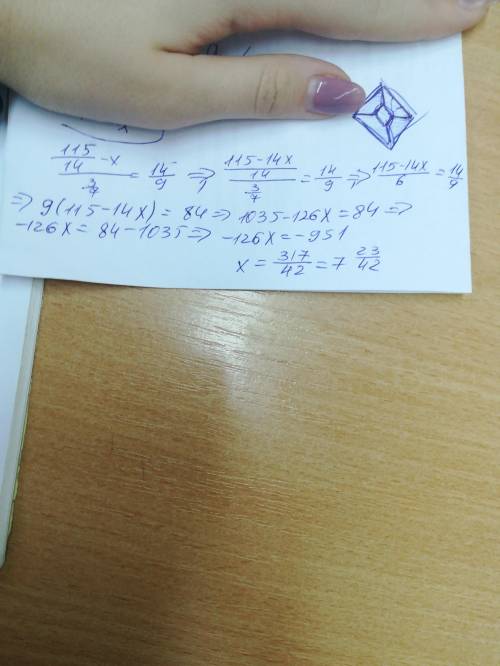 (115/14 - x)/(3/7) = 14/9 ⇒ ((115-14x)/14)/(3/7) = 14/9 ⇒ (115-14x)/6 = 14/9
⇒ 9(115-14x) = 84 ⇒ 1035-126x = 84 ⇒
-126x = 84-1035 ⇒ -126x = -951
x = 317/42 = 7 23/42